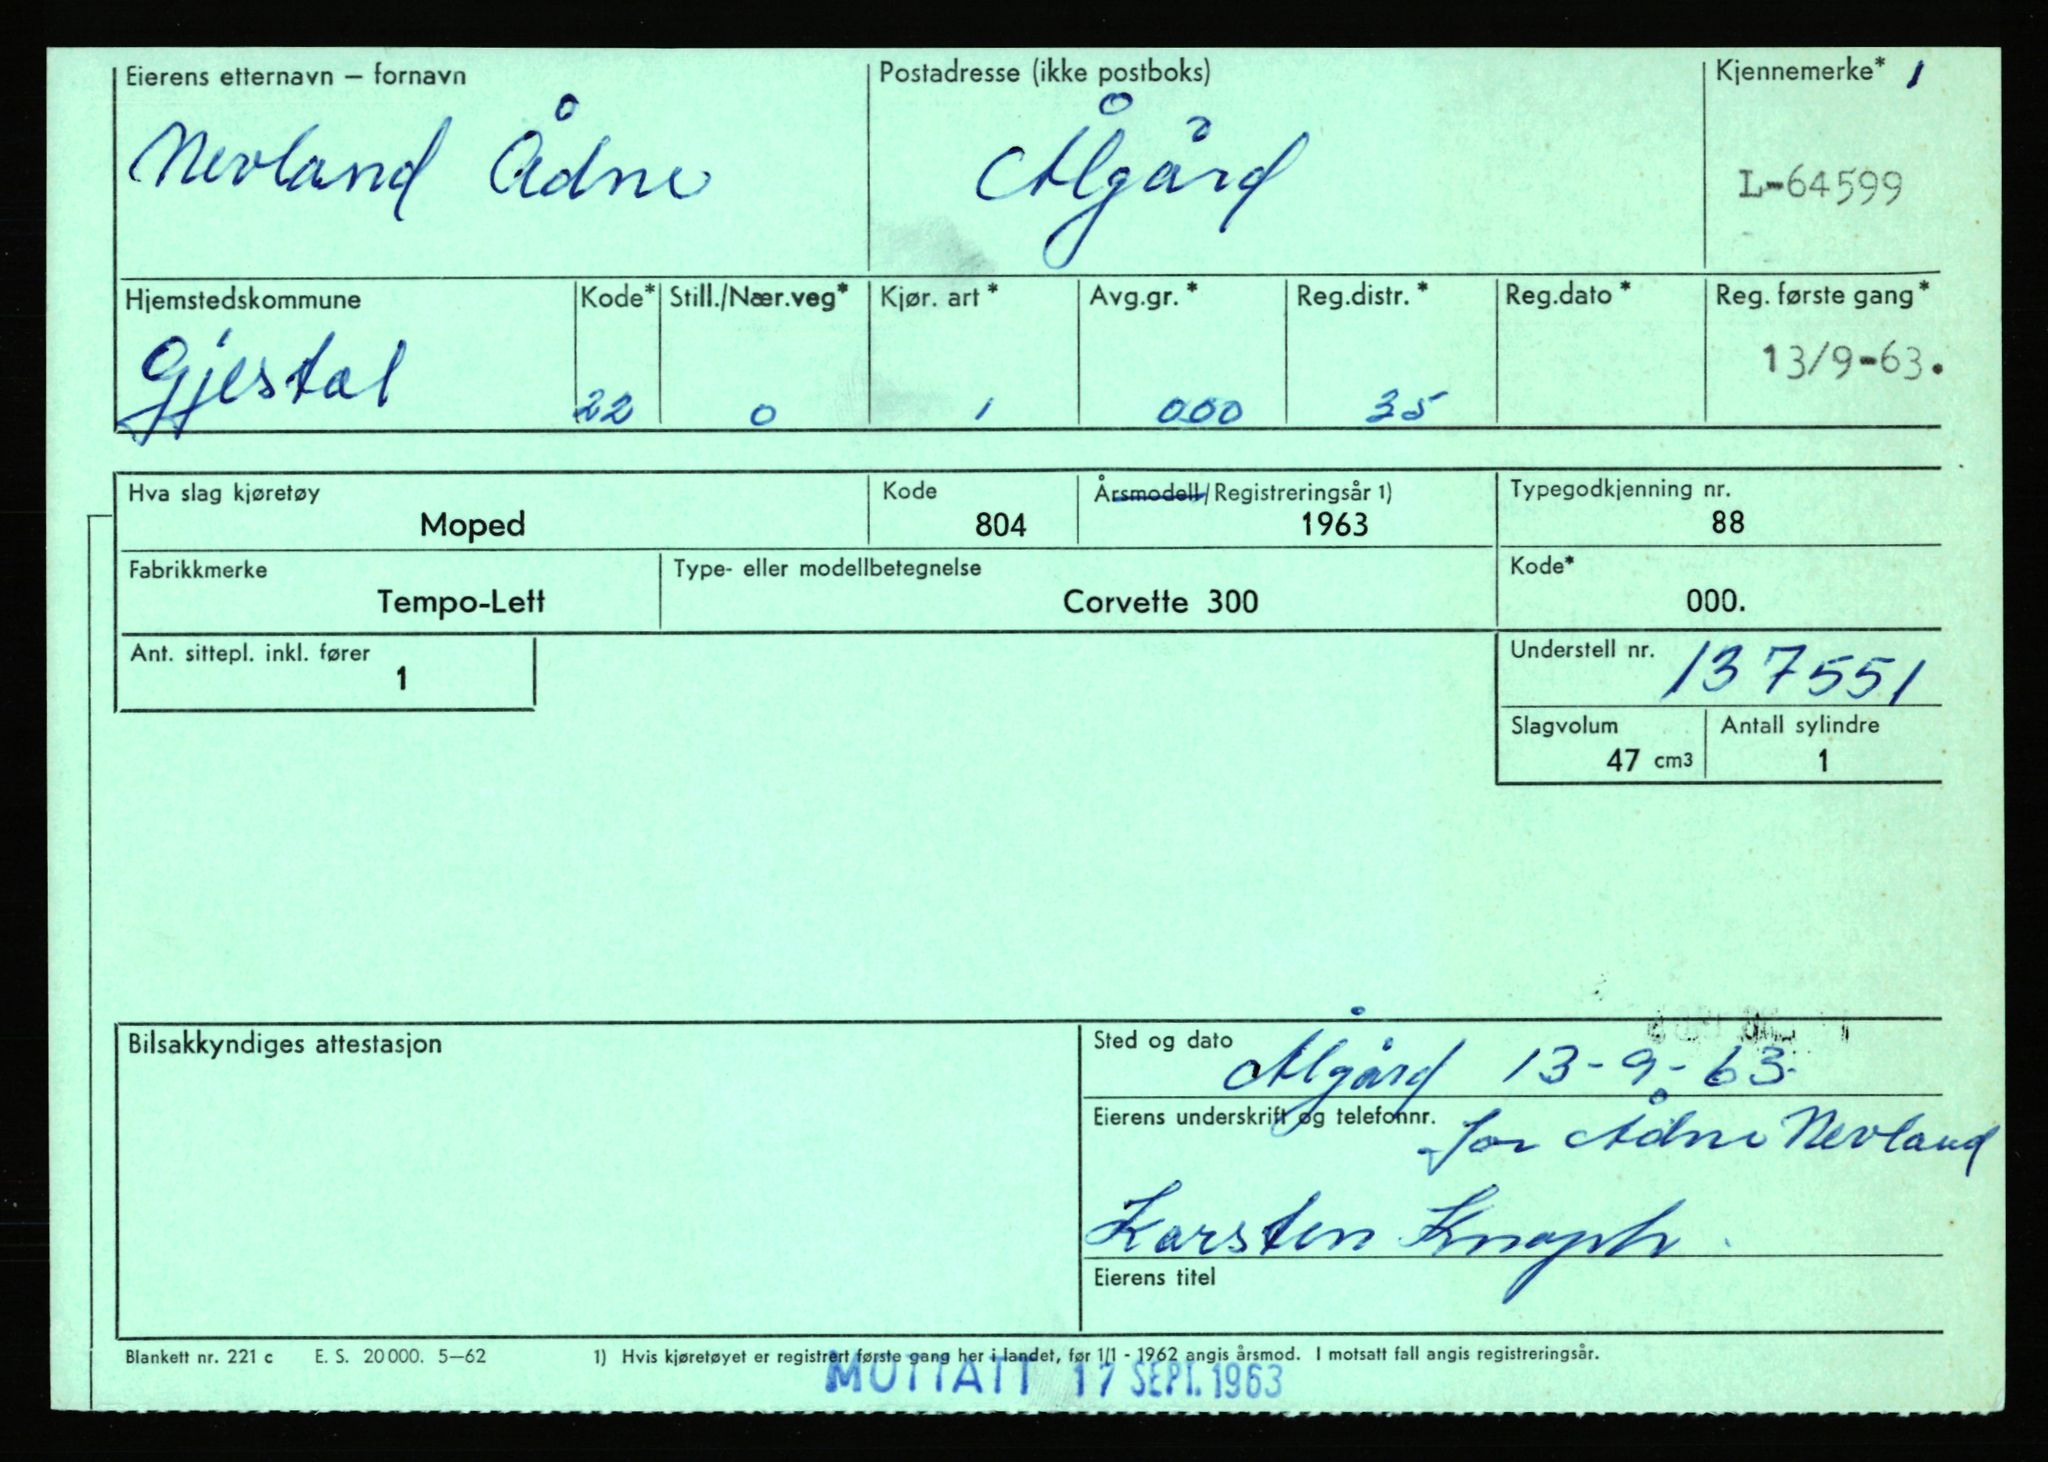 Eierens etternavn – fornavn Postadresse (ikke postboks) Kjennemerke* 1
Nevland Ådne Ålgård L-64599
Hjemstedskommune Kode* Still./Nær.veg* Kjør. art* Avg.gr.* Reg.distr.* Reg.dato* Reg. første gang*
Gjestal 22 0 1 000 35 13/9-63.
Hva slag kjøretøy Kode Årsmodell/Registreringsår 1) Typegodkjenning nr.
Moped 804 1963 88
Fabrikkmerke Type- eller modellbetegnelse Kode*
Tempo-Lett Corvette 300 000.
Ant. sittepl. inkl. fører Understell nr.
1 137551
Slagvolum Antall sylindre
47 cm3 1
Bilsakkyndiges attestasjon Sted og dato
Ålgård 13-9-63.
Eierens underskrift og telefonnr.
for Ådne Nevland
Karsten
Eierens titel
Blankett nr. 221 c E. S. 20000. 5–62 1) Hvis kjøretøyet er registrert første gang her i landet, før 1/1 - 1962 angis årsmod. I motsatt fall angis registreringsår.
MOTTATT 17 SEPT. 1963